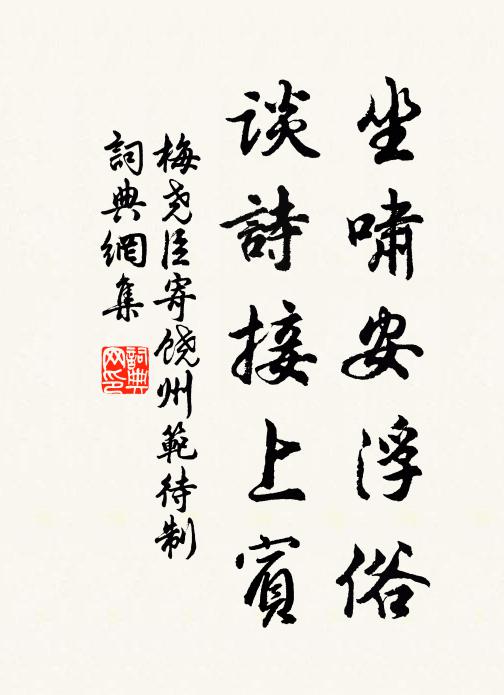 坐嘯安浮俗
談詩接上賓
梅尧臣寄饶州範待制
詞典網集
詞典
网印